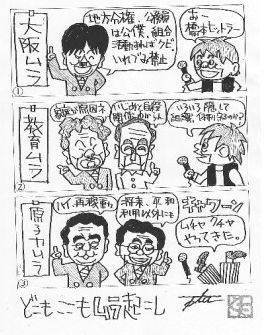 大阪ムラ
地方分権、公務員
は公僕、組合
活動すればクビ、
いれずみ禁止
おー
橋本ヒットラー
①
教育ムラ
いじめと自殺
いろいろ隠して
②
原子力ムラ
ハイ、再稼動
将来、平和
利用以外にも
ギャクーン
ムチャクチャ
やってきた。
③
どこもここもムラ起こし